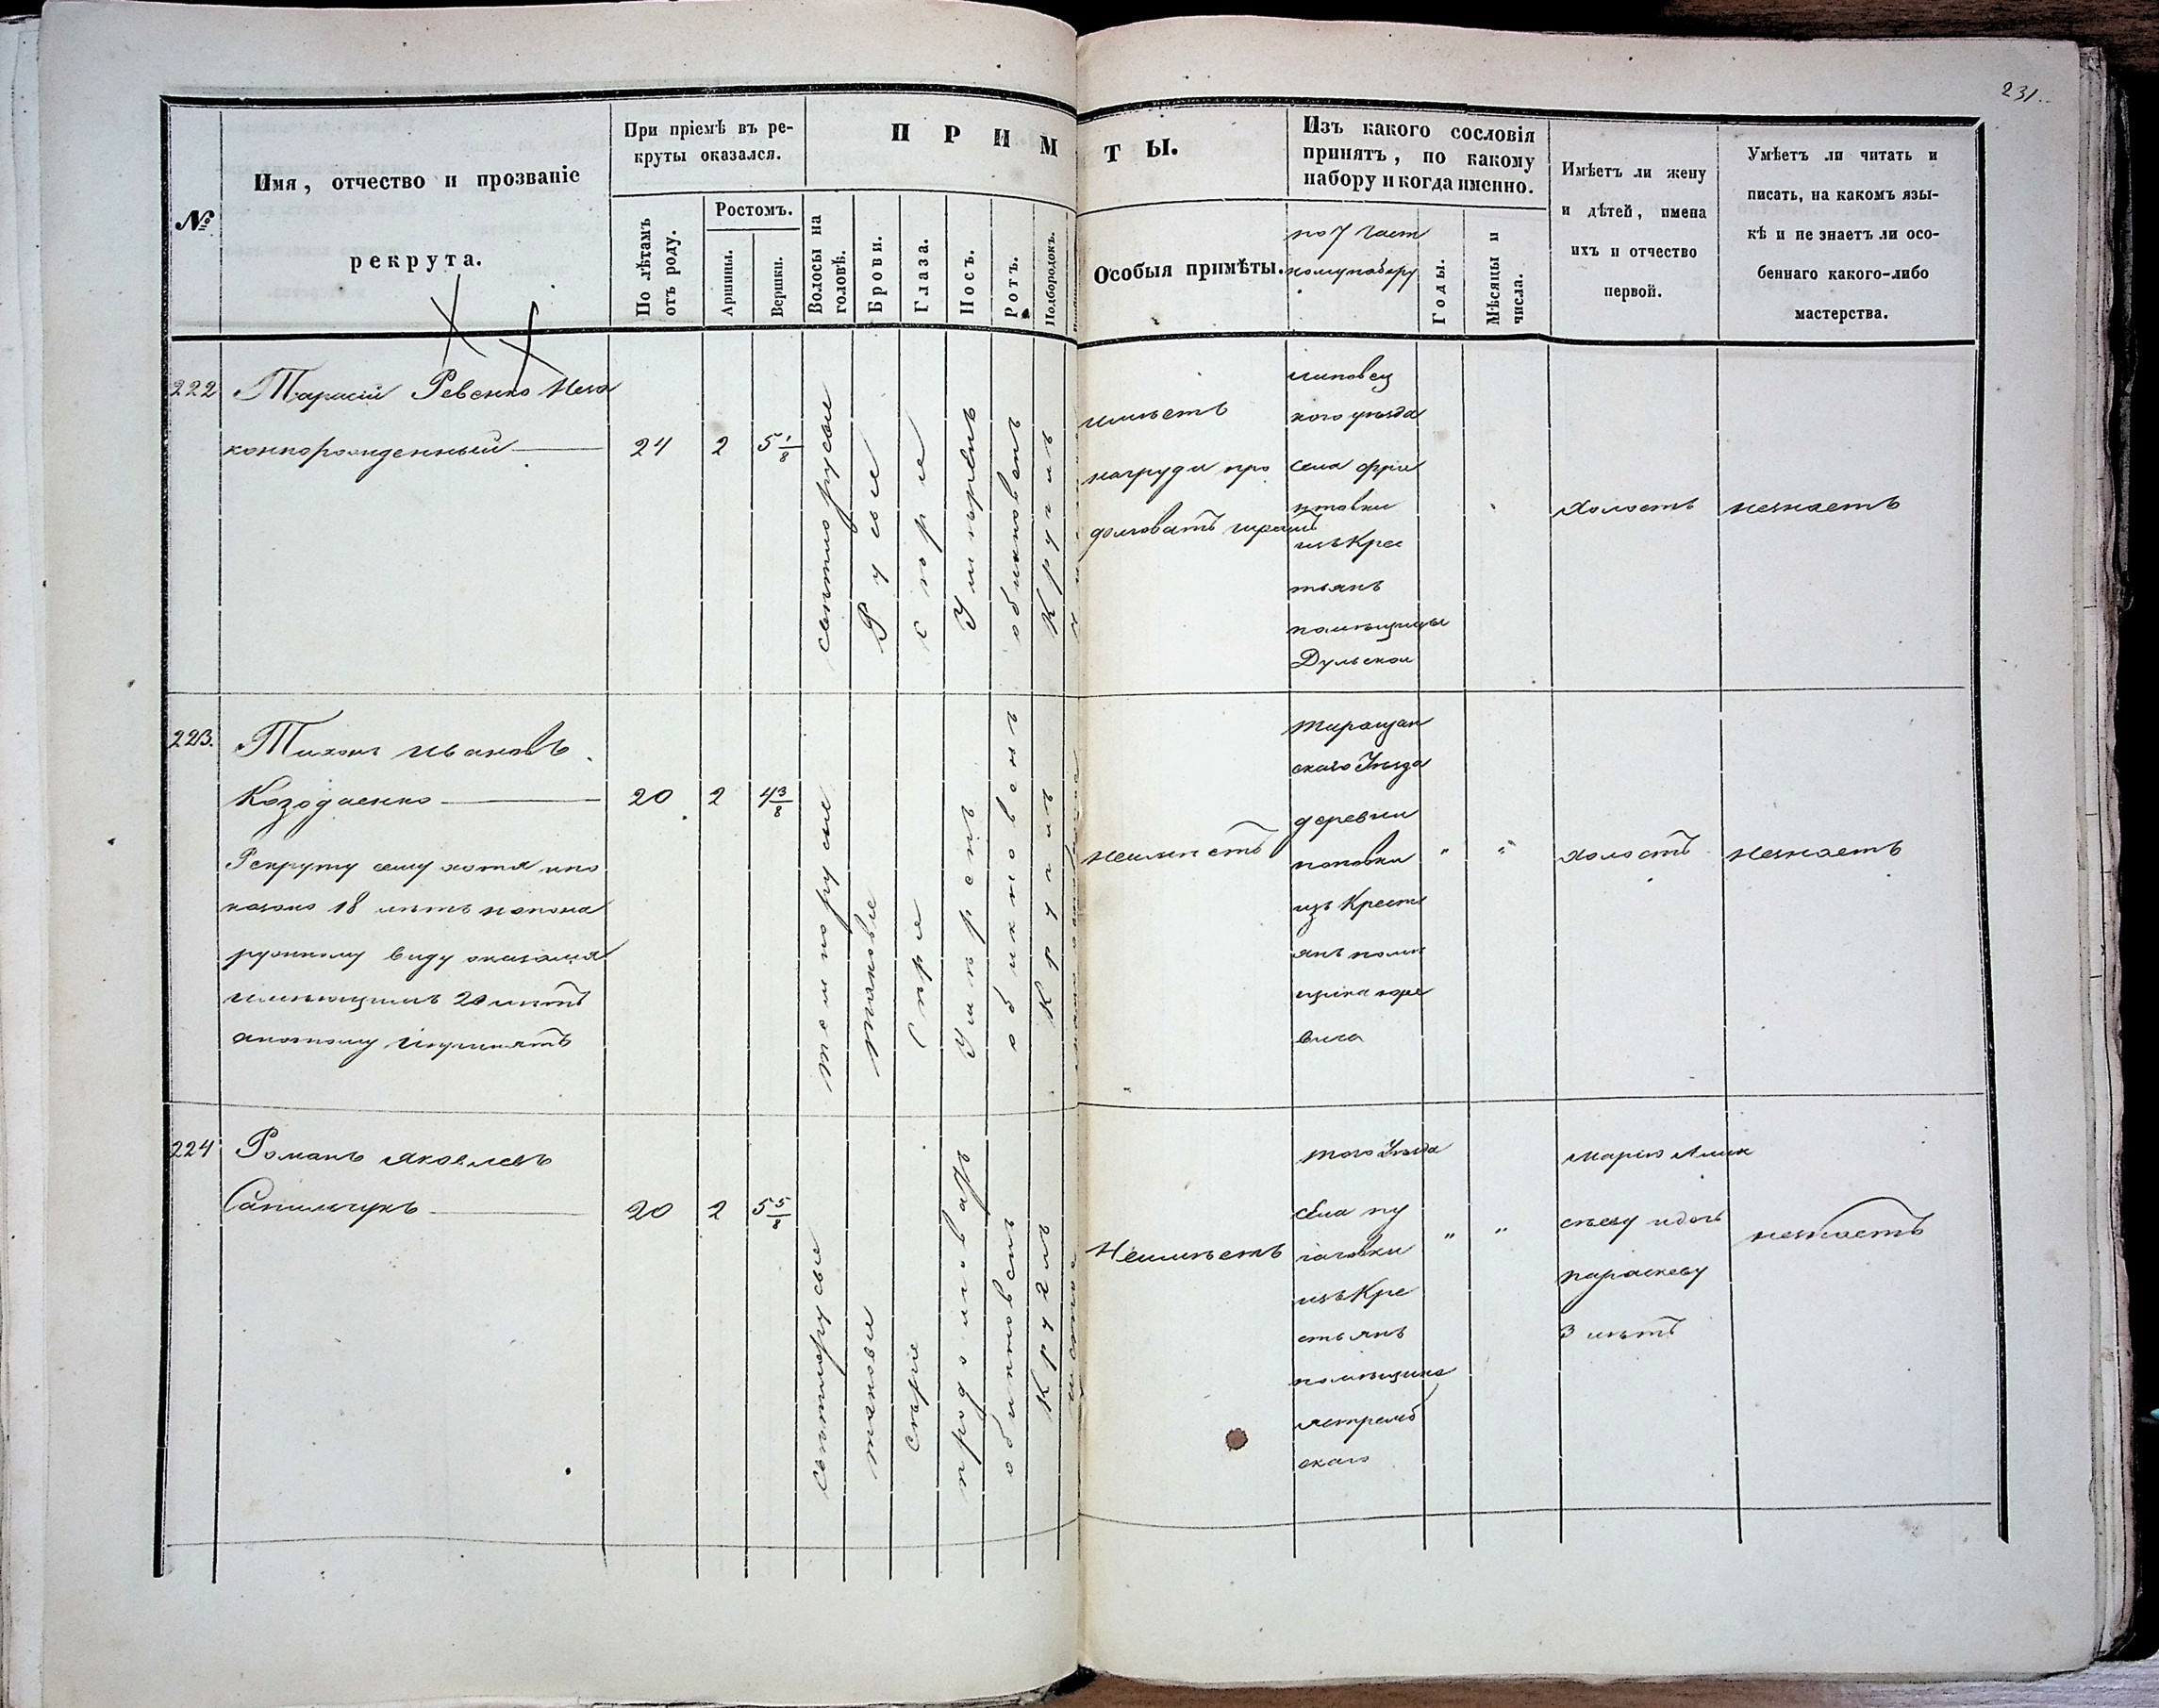 231
№
Имя, отчество и прозваніе
рекрута.
При пріемѣ въ ре-
круты оказался.
По лѣтамъ
отъ роду.
Ростомъ.
Аршины.
Вершки.
ПРИМ
ТЫ.
Волосы на
головѣ.
Брови.
Глаза.
Носъ.
Ротъ.
Подбородокъ.
Особыя примѣты.
Изъ какого сословія
принятъ, по какому
набору и когда именно.
по 7 част
ному набору
Годы.
Мѣсяцы и
числа.
Имѣетъ ли жену
и дѣтей, имена
ихъ и отчество
первой.
Умѣетъ ли читать и
писать, на какомъ язы-
кѣ и не знаетъ ли осо-
беннаго какого-либо
мастерства.
222
Тарасій Ревенко Неза
коннорожденный
24
2
5 1/8
свѣтлорусые
Русые
сѣрые
Умѣренъ
обыкновенъ
Круглъ
имѣетъ
на груди про
долговатъ шрамъ
липовец
кого уѣзда
села
изъ Крес
тьянъ
помѣщицы
Дульской
холостъ
незнаетъ
223.
Тихонъ Ивановъ
Козодаенко
Рекруту сему хотя и по
казано 18 лѣтъ но по на
ружному виду оказался
имѣющимъ 20 лѣтъ
а потому и принятъ
20
2
4 3/8
темнорусые
таковые
Сѣрые
Умѣренъ
обыкновенъ
Круглъ
неимѣетъ
Таращан
скаго Уѣзда
деревни
поповки
изъ Крестъ
янъ помѣ
щика юре
вича
"
"
холостъ
незнаетъ
224
Романъ Яковлевъ
20
2
5 5/8
свѣтлорусые
таковые
Сѣрые
продолговатъ
обыкновенъ
Круглъ
Неимѣетъ
того Уѣзда
села пу
гачовки
изъ Кре
стьянъ
помѣщика
ястремб
скаго
"
"
Марію Алек
сѣеву и дочь
параскеву
3 лѣтъ
незнаетъ